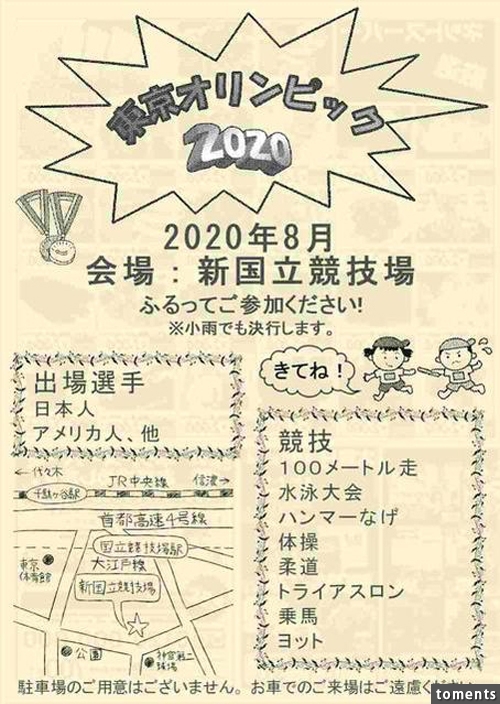 東京オリンピック
2020
2020年8月
会場：新国立競技場
ふるってご参加ください!
※小雨でも決行します。
きてね！
出場選手
日本人
アメリカ人、他
競技
100メートル走
水泳大会
ハンマーなげ
体操
柔道
トライアスロン
乗馬
ヨット
←代々木
JR中央線
信濃→
千駄ヶ谷駅
首都高速4号線
国立競技場駅
大江戸線
東京
体育館
新国立競技場
公園
神宮第二
球場
駐車場のご用意はございません。お車でのご来場はご遠慮ください。
toments